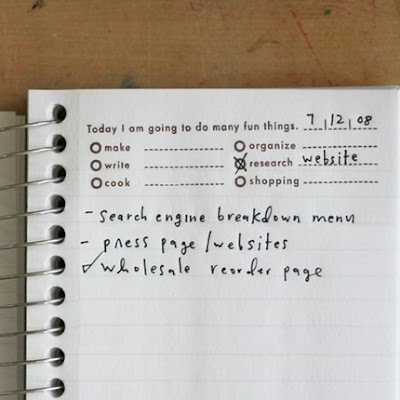 7 | 12 | 08
Today I am going to do many fun things.
make
organize
write
research website
cook
shopping
- search engine breakdown menu
- press page / websites
✓ wholesale reorder page